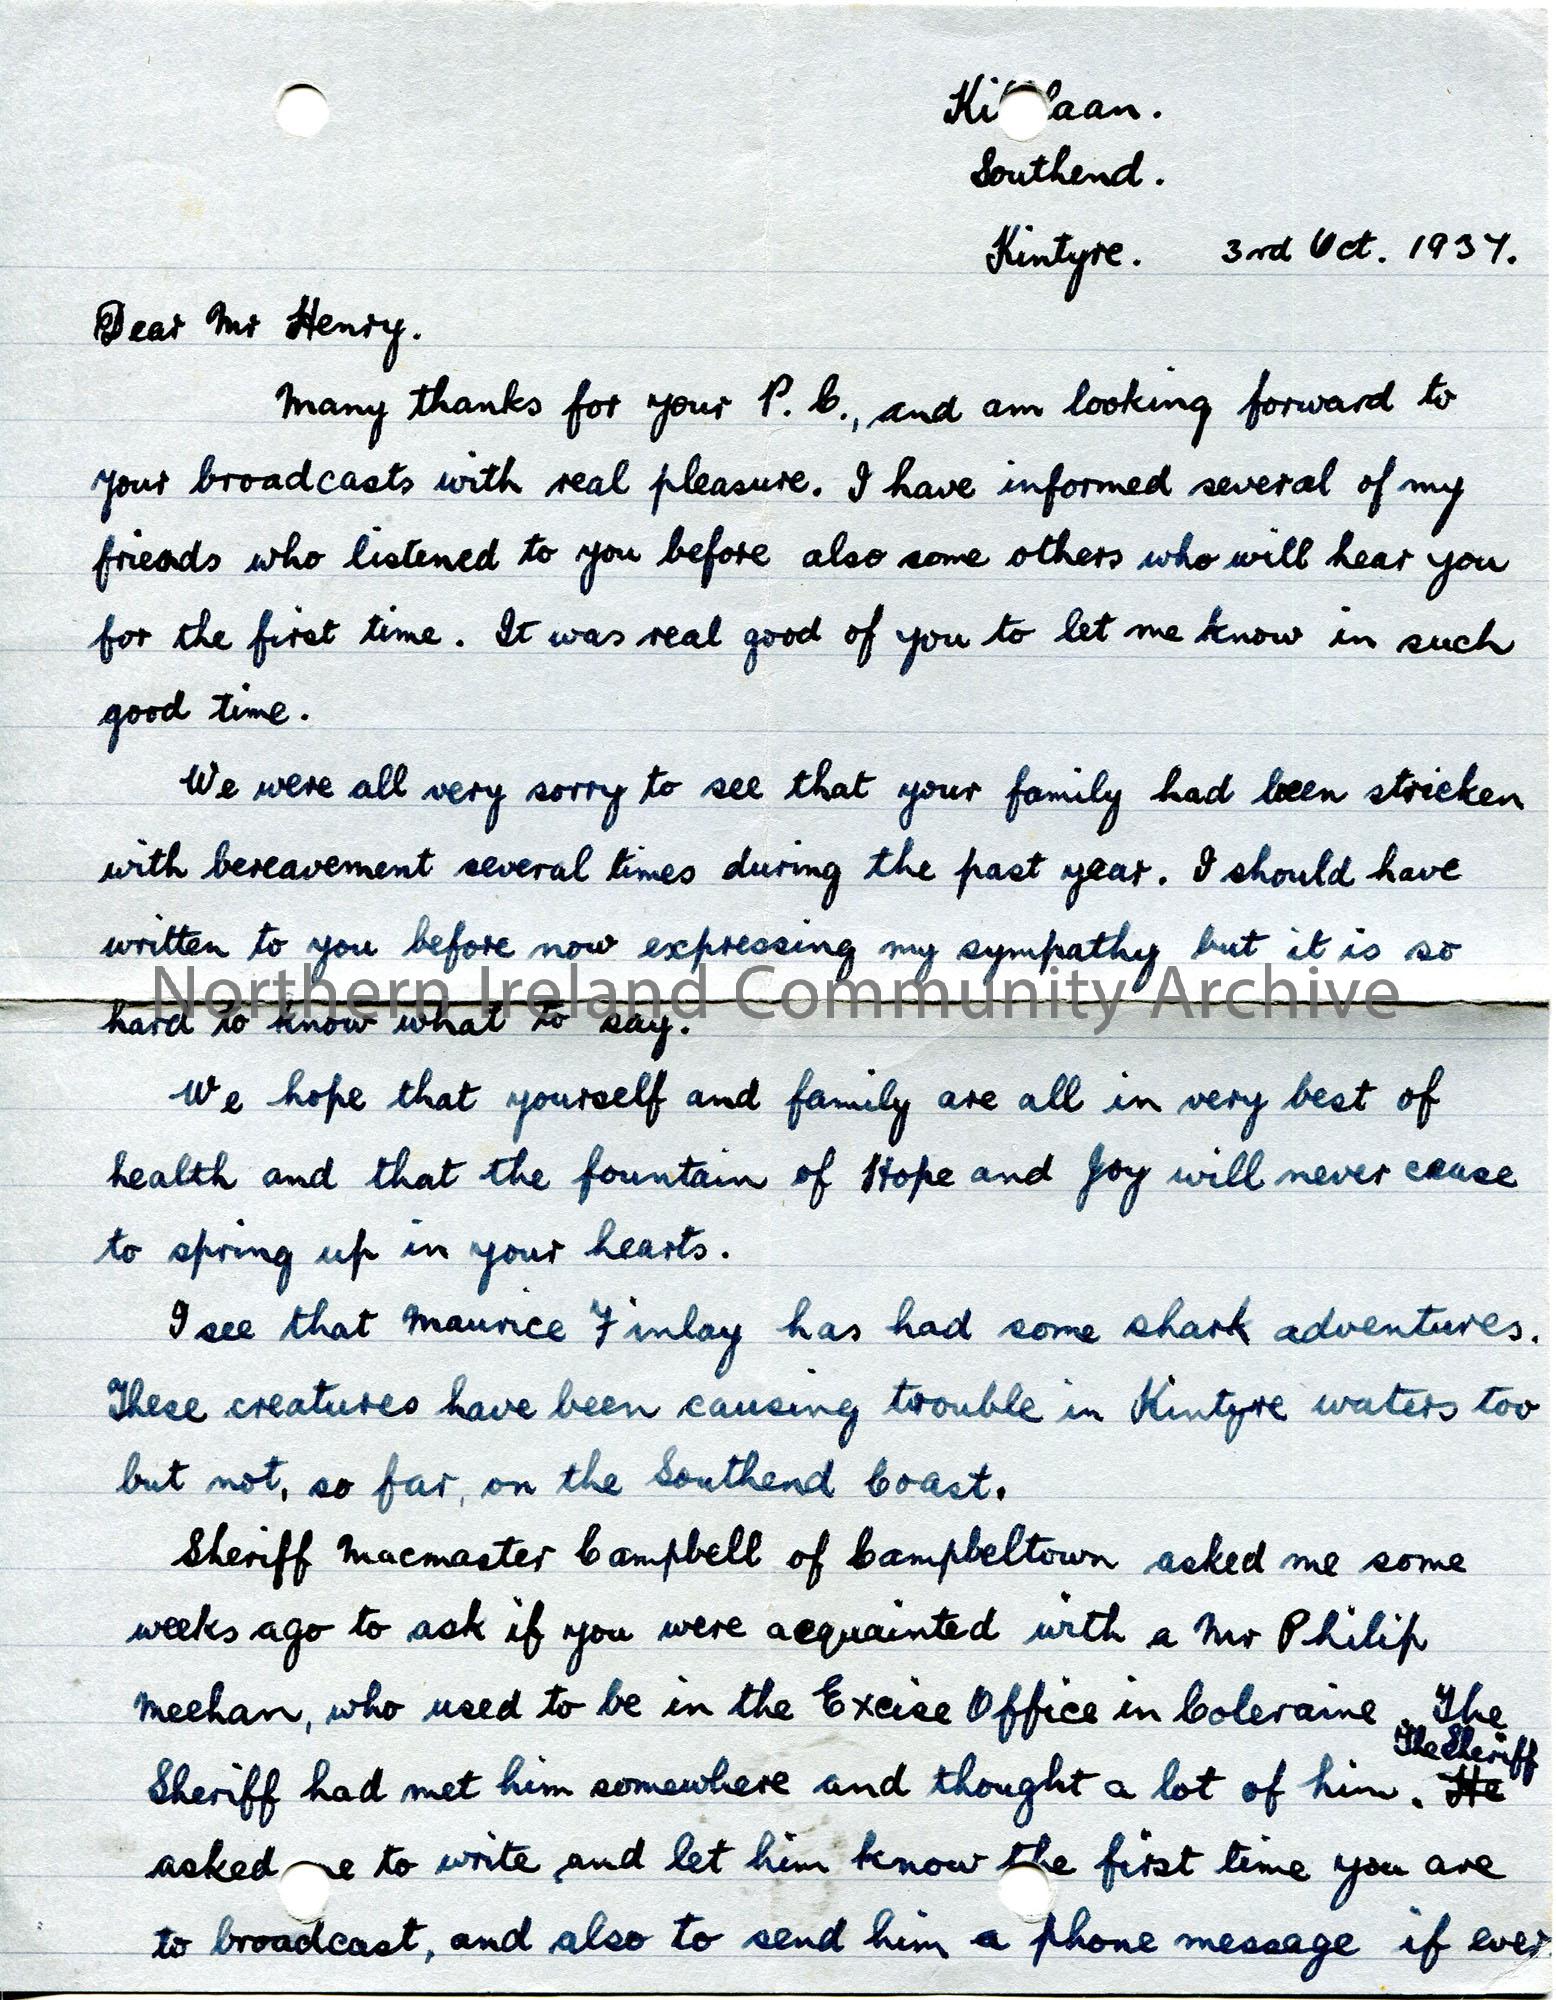 Southend.
Kintyre. 3rd Oct. 1937.
Dear Mr Henry.
Many thanks for your P. C., and am looking forward to
your broadcasts with real pleasure. I have informed several of my
friends who listened to you before also some others who will hear you
for the first time. It was real good of you to let me know in such
good time.
We were all very sorry to see that your family had been stricken
with bereavement several times during the past year. I should have
written to you before now expressing my sympathy but it is so
Northern Ireland Community Archive
hard to know what to say.
We hope that yourself and family are all in very best of
health and that the fountain of Hope and Joy will never cease
to spring up in your hearts.
I see that Maurice Finlay has had some shark adventures.
These creatures have been causing trouble in Kintyre waters too
but not, so far, on the Southend Coast.
Sheriff Macmaster Campbell of Campbeltown asked me some
weeks ago to ask if you were acquainted with a Mr Philip
Meehan, who used to be in the Excise Office in Coleraine. The
The Sheriff
Sheriff had met him somewhere and thought a lot of him. He
asked me to write and let him know the first time you are
to broadcast, and also to send him a phone message if ever